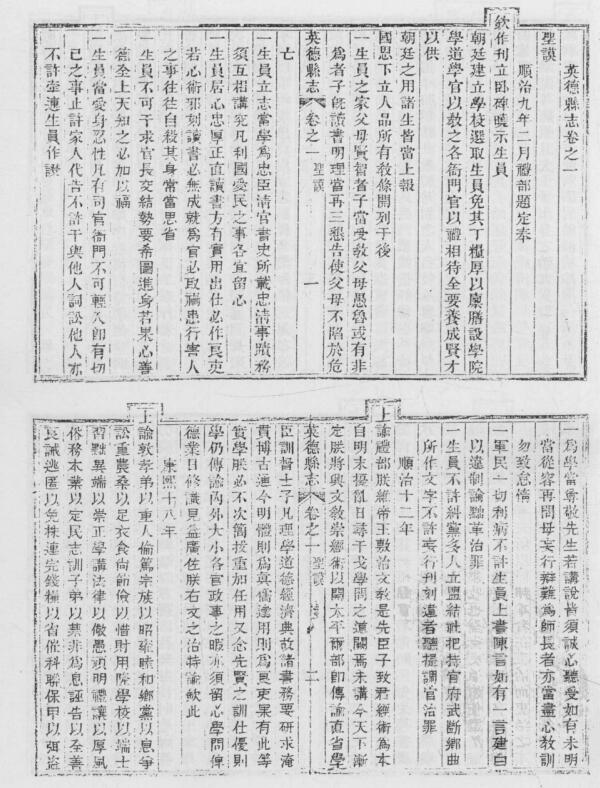 英德縣志卷之一
聖謨
順治九年二月禮部題定奉
欽作刊立卧碑曉示生員
朝廷建立學校選取生員免其丁糧厚以廩膳設學院
學道學官以敎之各衙門官以禮相待全要養成賢才
以供
朝廷之用諸生皆當上報
國恩下立人品所有敎條開列于後
一生員之家父母賢智者子當受敎父母愚魯或有非
爲者子旣讀書明理當再三懇告使父母不陷於危
英德縣志 卷之一 聖謨 一
亡
一生員立志當學爲忠臣清官書史所載忠清事蹟務
須互相講究凡利國愛民之事各宜留心
一生員居心忠厚正直讀書方有實用出仕必作良吏
若心術邪刻讀書必無成就爲官必取禍患行害人
之事往往自殺其身常當思省
一生員不可干求官長交結勢要希圖進身若果心善
德全上天知之必加以福
一生員當愛身忍性凡有司官衙門不可輕入卽有切
已之事止許家人代告不許干與他人詞訟他人亦
不許牽連生員作證
一爲學當尊敬先生若講說皆須誠心聽受如有未明
當從容再問毋妄行辯難爲師長者亦當盡心敎訓
勿致怠惰
一軍民一切利病不許生員上書陳言如有一言建白
以違制論黜革治罪
一生員不許糾黨多人立盟結社把持官府武斷鄉曲
所作文字不許妄行刊刻違者聽提調官治罪
順治十二年
上諭禮部朕維帝王敷治文敎是先臣子致君經術爲本
自明末擾亂日尋干戈學問之道闕焉未講今天下漸
定朕將興文敎崇經術以開太平爾部卽傳諭直省學
英德縣志 卷之一 聖謨 二
臣訓督士子凡理學道德經濟典故諸書務要研求淹
貫博古通今明體則爲眞儒達用則爲良吏果有此等
實學朕必不次簡拔重加任用又念先賢之訓仕優則
學仍傳諭內外大小各官政事之暇亦須留心學問俾
德業日修識見益廣佐朕右文之治特諭欽此
康熙十八年
上諭敦孝弟以重人倫篤宗族以昭雍睦和鄉黨以息爭
訟重農桑以足衣食尙節儉以惜財用隆學校以端士
習黜異端以崇正學講法律以儆愚頑明禮讓以厚風
俗務本業以定民志訓子弟以禁非爲息誣告以全善
良誡逃匿以免株連完錢糧以省催科聯保甲以弭盜